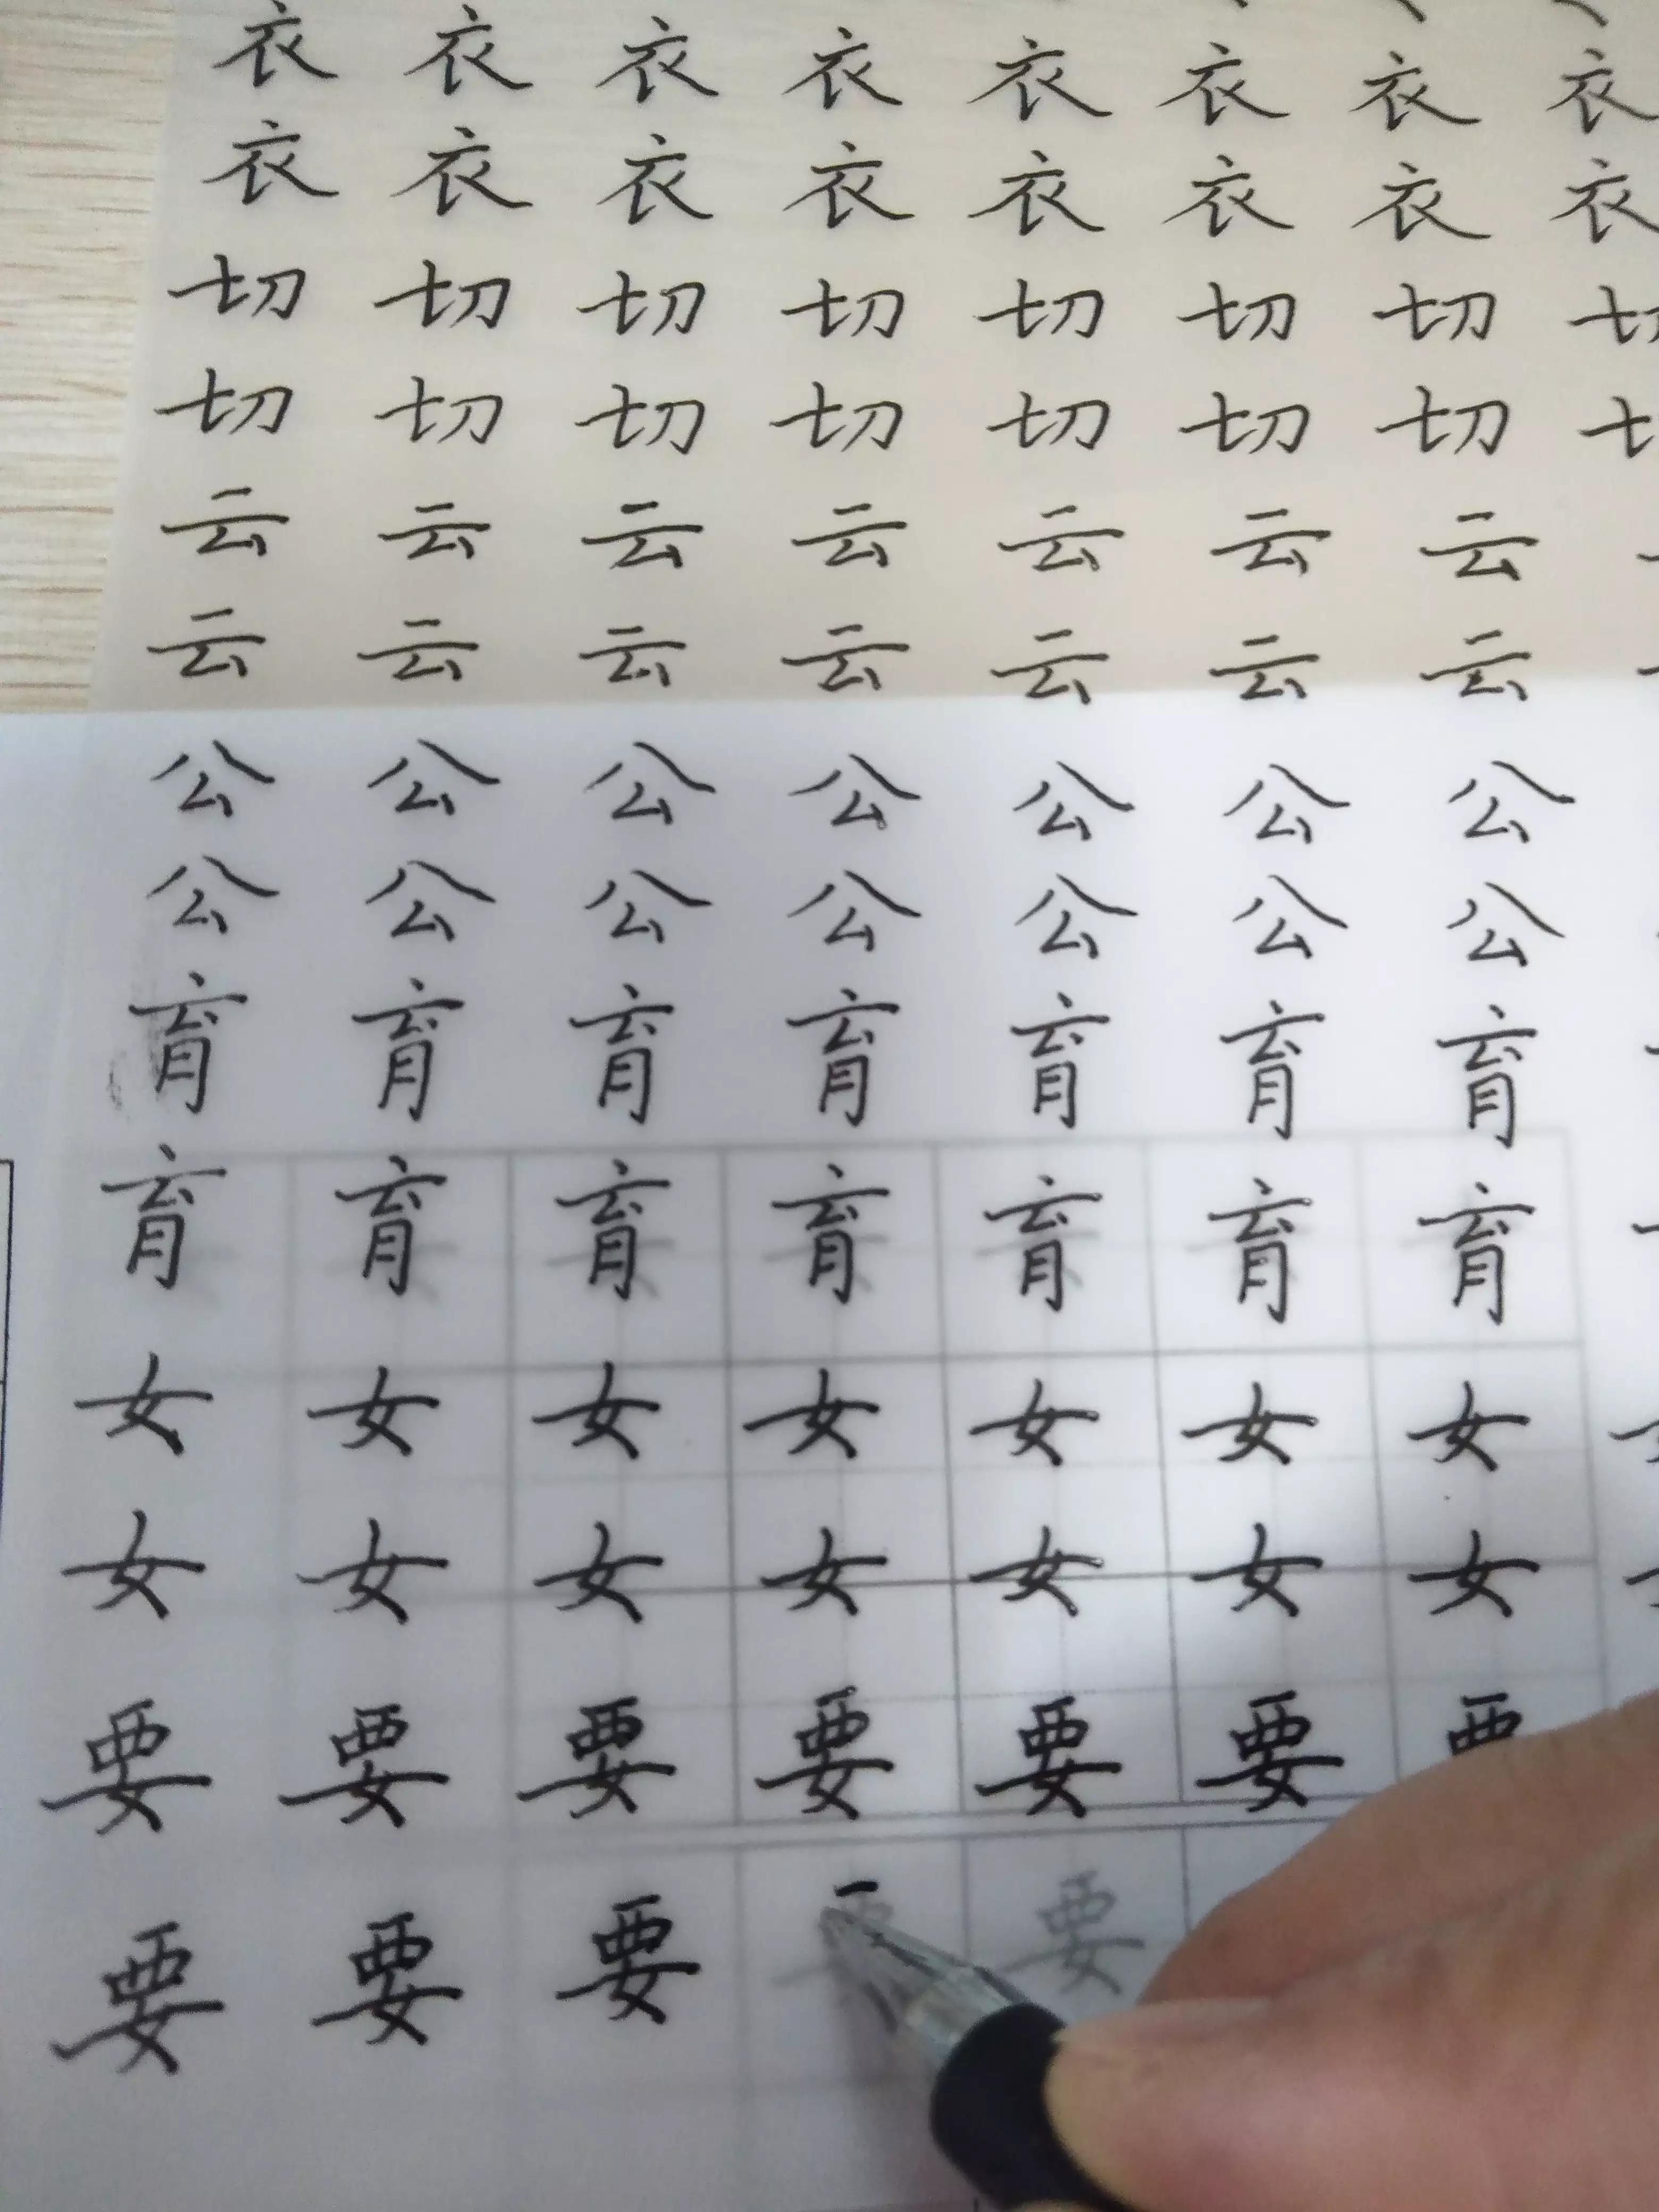 衣 衣 衣 衣 衣 衣 衣 衣
衣 衣 衣 衣 衣 衣 衣 衣
切 切 切 切 切 切 切 切
切 切 切 切 切 切 切
云 云 云 云 云 云 云
云 云 云 云 云 云 云
公 公 公 公 公 公 公
公 公 公 公 公 公 公
育 育 育 育 育 育 育
育 育 育 育 育 育 育
女 女 女 女 女 女 女
女 女 女 女 女 女 女
要 要 要 要 要 要
要 要 要 要